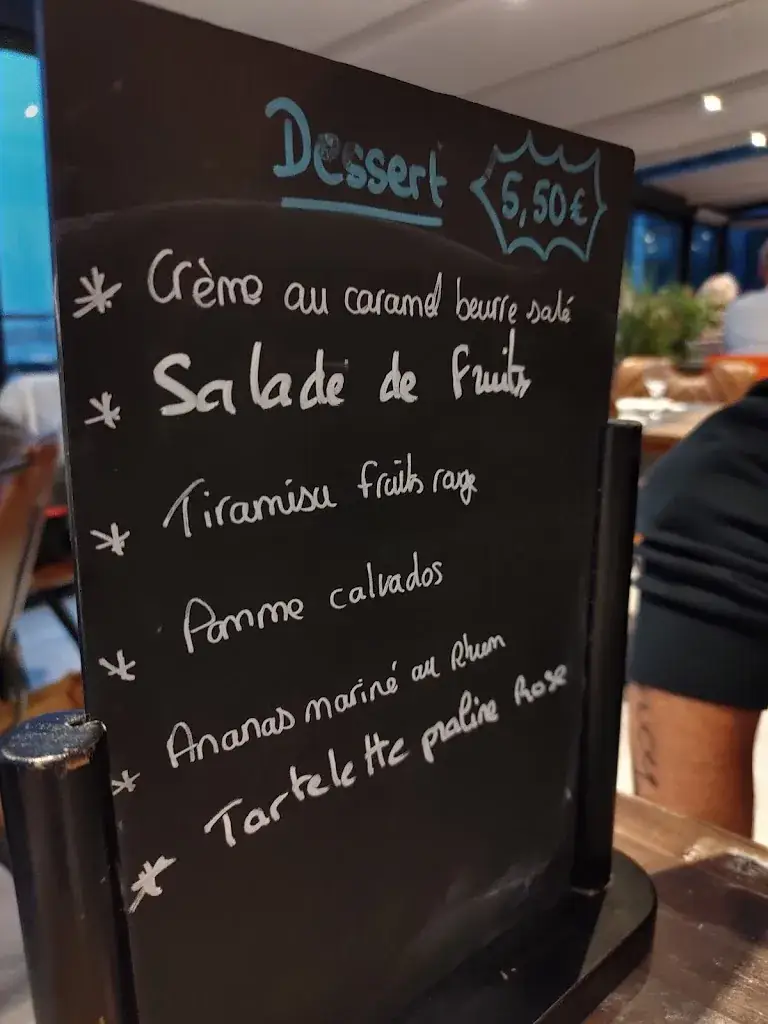 Dessert 5,50€
* Crème au caramel beurre salé
* Salade de fruits
* Tiramisu fruits rouge
* Pomme calvados
* Ananas mariné au Rhum
* Tartelette praline Rose